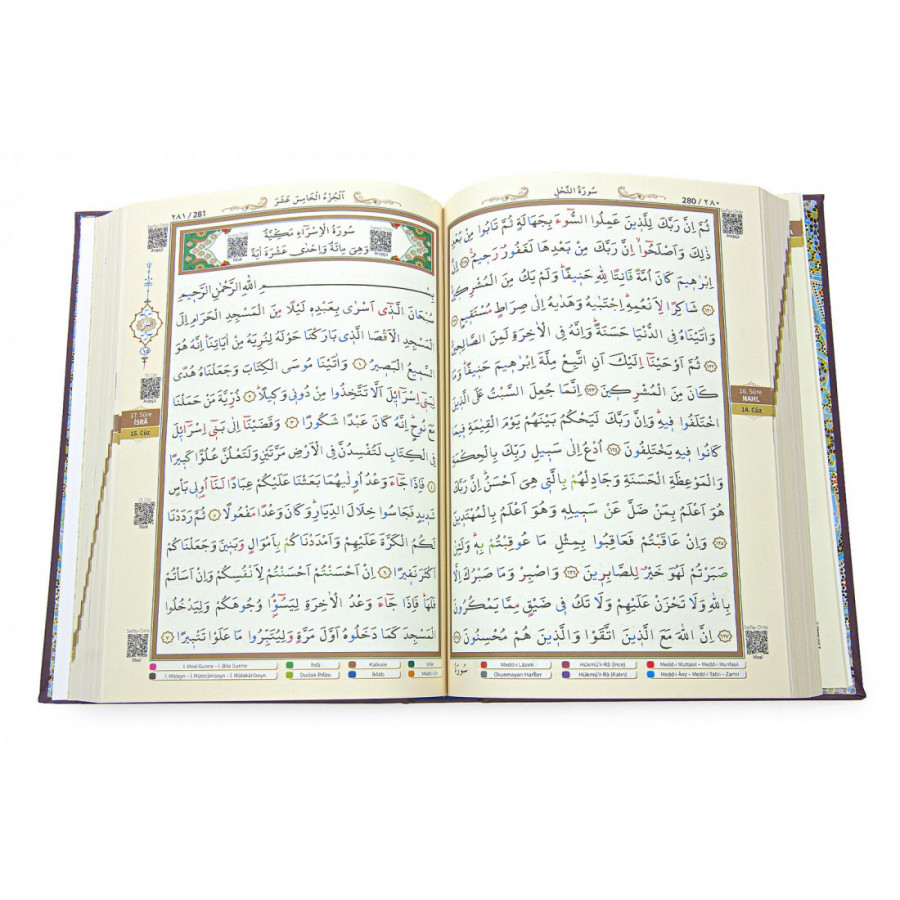 280 / ٢٨٠
سُورَةُ النَّحْلِ
ثُمَّ اِنَّ رَبَّكَ لِلَّذ۪ينَ عَمِلُوا السُّٓوءَ بِجَهَالَةٍ ثُمَّ تَابُوا مِنْ بَعْدِ
ذٰلِكَ وَاَصْلَحُٓوا اِنَّ رَبَّكَ مِنْ بَعْدِهَا لَغَفُورٌ رَح۪يمٌ
اِبْرٰه۪يمَ كَانَ اُمَّةً قَانِتًا لِلّٰهِ حَن۪يفًا وَلَمْ يَكُ مِنَ الْمُشْرِك۪ينَ
شَاكِرًا لِاَنْعُمِهِ اِجْتَبٰيهُ وَهَدٰيهُ اِلٰى صِرَاطٍ مُسْتَق۪يمٍ
وَاٰتَيْنَاهُ فِي الدُّنْيَا حَسَنَةً وَاِنَّهُ فِي الْاٰخِرَةِ لَمِنَ الصَّالِح۪ينَ
ثُمَّ اَوْحَيْنَٓا اِلَيْكَ اَنِ اتَّبِعْ مِلَّةَ اِبْرٰه۪يمَ حَن۪يفًا وَمَا
كَانَ مِنَ الْمُشْرِك۪ينَ ﴿١٢٣﴾ اِنَّمَا جُعِلَ السَّبْتُ عَلَى الَّذ۪ينَ
اخْتَلَفُوا ف۪يهِ وَاِنَّ رَبَّكَ لَيَحْكُمُ بَيْنَهُمْ يَوْمَ الْقِيٰمَةِ ف۪يمَا
كَانُوا ف۪يهِ يَخْتَلِفُونَ ﴿١٢٤﴾ اُدْعُ اِلٰى سَب۪يلِ رَبِّكَ بِالْحِكْمَةِ
وَالْمَوْعِظَةِ الْحَسَنَةِ وَجَادِلْهُمْ بِالَّت۪ي هِيَ اَحْسَنُ اِنَّ رَبَّكَ
هُوَ اَعْلَمُ بِمَنْ ضَلَّ عَنْ سَب۪يلِه۪ وَهُوَ اَعْلَمُ بِالْمُهْتَد۪ينَ
﴿١٢٥﴾ وَاِنْ عَاقَبْتُمْ فَعَاقِبُوا بِمِثْلِ مَا عُوقِبْتُمْ بِه۪ وَلَئِنْ
صَبَرْتُمْ لَهُوَ خَيْرٌ لِلصَّابِر۪ينَ ﴿١٢٦﴾ وَاصْبِرْ وَمَا صَبْرُكَ اِلَّا
بِاللّٰهِ وَلَا تَحْزَنْ عَلَيْهِمْ وَلَا تَكُ ف۪ي ضَيْقٍ مِمَّا يَمْكُرُونَ
﴿١٢٧﴾ اِنَّ اللّٰهَ مَعَ الَّذ۪ينَ اتَّقَوْا وَالَّذ۪ينَ هُمْ مُحْسِنُونَ ﴿١٢٨﴾
16. Sûre
NAHL
14. Cüz
Medd-i Lâzım
Hükmü'r-Râ (İnce)
Medd-i Muttasıl - Medd-i Munfasıl
Okunmayan Harfler
Hükmü'r-Râ (Kalın)
Medd-i Ârız - Medd-i Tabiî - Zamir
٢٨١ / 281
اَلْجُزْءُ الْخَامِسَ عَشَرَ
سُورَةُ الْاِسْرَاءِ مَكِّيَّةٌ
وَهِيَ مِائَةٌ وَاِحْدٰى عَشْرَةَ اٰيَةً
بِسْمِ اللّٰهِ الرَّحْمٰنِ الرَّح۪يمِ
سُبْحَانَ الَّذ۪ٓي اَسْرٰى بِعَبْدِه۪ لَيْلًا مِنَ الْمَسْجِدِ الْحَرَامِ اِلَى
الْمَسْجِدِ الْاَقْصَا الَّذ۪ي بَارَكْنَا حَوْلَهُ لِنُرِيَهُ مِنْ اٰيَاتِنَا اِنَّهُ هُوَ
السَّم۪يعُ الْبَص۪يرُ ﴿١﴾ وَاٰتَيْنَا مُوسَى الْكِتَابَ وَجَعَلْنَاهُ هُدًى
لِبَن۪ٓي اِسْرَٓائ۪لَ اَلَّا تَتَّخِذُوا مِنْ دُون۪ي وَك۪يلًا ﴿٢﴾ ذُرِّيَّةَ مَنْ حَمَلْنَا
مَعَ نُوحٍ اِنَّهُ كَانَ عَبْدًا شَكُورًا ﴿٣﴾ وَقَضَيْنَٓا اِلٰى بَن۪ٓي اِسْرَٓائ۪لَ
فِي الْكِتَابِ لَتُفْسِدُنَّ فِي الْاَرْضِ مَرَّتَيْنِ وَلَتَعْلُنَّ عُلُوًّا كَب۪يرًا
﴿٤﴾ فَاِذَا جَٓاءَ وَعْدُ اُو۫لٰيهُمَا بَعَثْنَا عَلَيْكُمْ عِبَادًا لَنَٓا اُو۬ل۪ي بَأْسٍ
شَد۪يدٍ فَجَاسُوا خِلَالَ الدِّيَارِ وَكَانَ وَعْدًا مَفْعُولًا ﴿٥﴾ ثُمَّ رَدَدْنَا
لَكُمُ الْكَرَّةَ عَلَيْهِمْ وَاَمْدَدْنَاكُمْ بِاَمْوَالٍ وَبَن۪ينَ وَجَعَلْنَاكُمْ
اَكْثَرَ نَف۪يرًا ﴿٦﴾ اِنْ اَحْسَنْتُمْ اَحْسَنْتُمْ لِاَنْفُسِكُمْ وَاِنْ اَسَأْتُمْ
فَلَهَا فَاِذَا جَٓاءَ وَعْدُ الْاٰخِرَةِ لِيَسُٓؤُ۫ا وُجُوهَكُمْ وَلِيَدْخُلُوا
الْمَسْجِدَ كَمَا دَخَلُوهُ اَوَّلَ مَرَّةٍ وَلِيُتَبِّرُوا مَا عَلَوْا تَتْب۪يرًا ﴿٧﴾
17. Sûre
İSRÂ
15. Cüz
İ. Meal Gunne - İ. Bila Gunne
İhfâ
Kalkale
İ. Misleyn - İ. Mütecâniseyn - İ. Mütekâribeyn
Dudak İhfâsı
İklâb